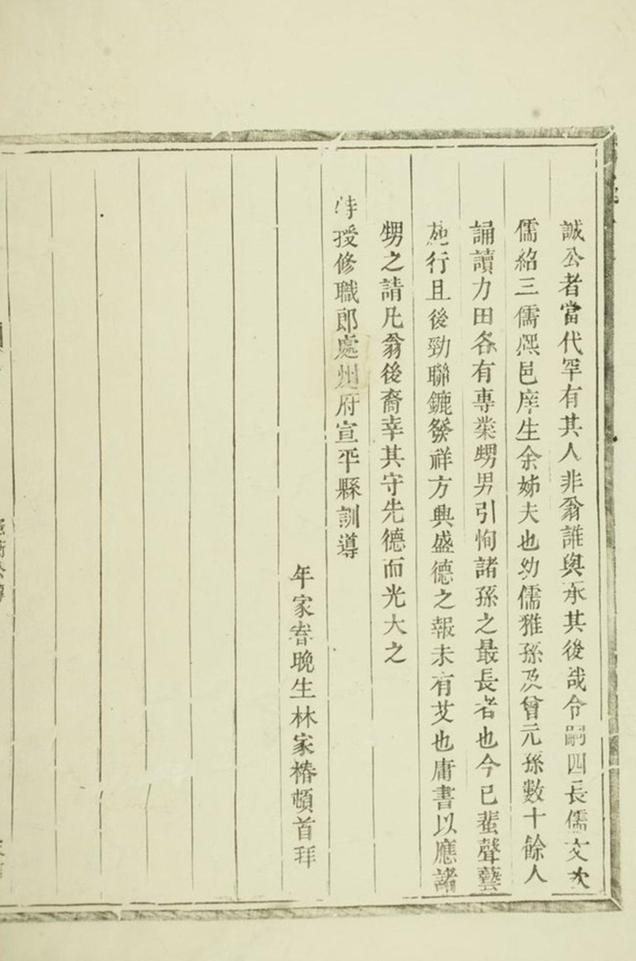 誠公者當代罕有其人非翁誰與承其後哉令嗣四長儒文次
儒紹三儒熈邑庠生余姊夫也幼儒雅孫及曾元孫數十餘人
誦讀力田各有專業甥男引恂諸孫之最長者也今已蜚聲藝
施行且後勁聯鑣發祥方興盛德之報未有艾也庸書以應諸
甥之請凡翁後裔幸其守先德而光大之
特授修職郎處州府宣平縣訓導
年家眷晚生林家椿頓首拜